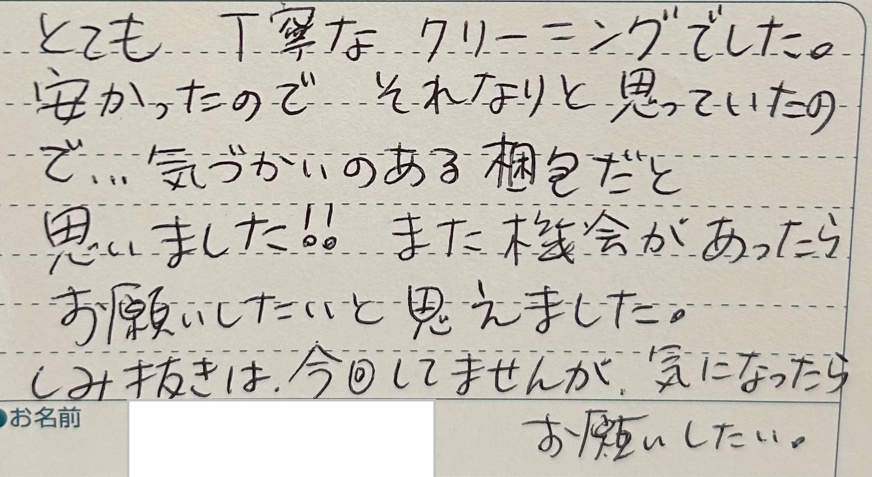 とても 丁寧な クリーニングでした。
安かったので それなりと思っていたの
で…気づかいのある梱包だと
思いました!! また機会があったら
お願いしたいと思えました。
しみ抜きは、今回してませんが、気になったら
お願いしたい。
●お名前